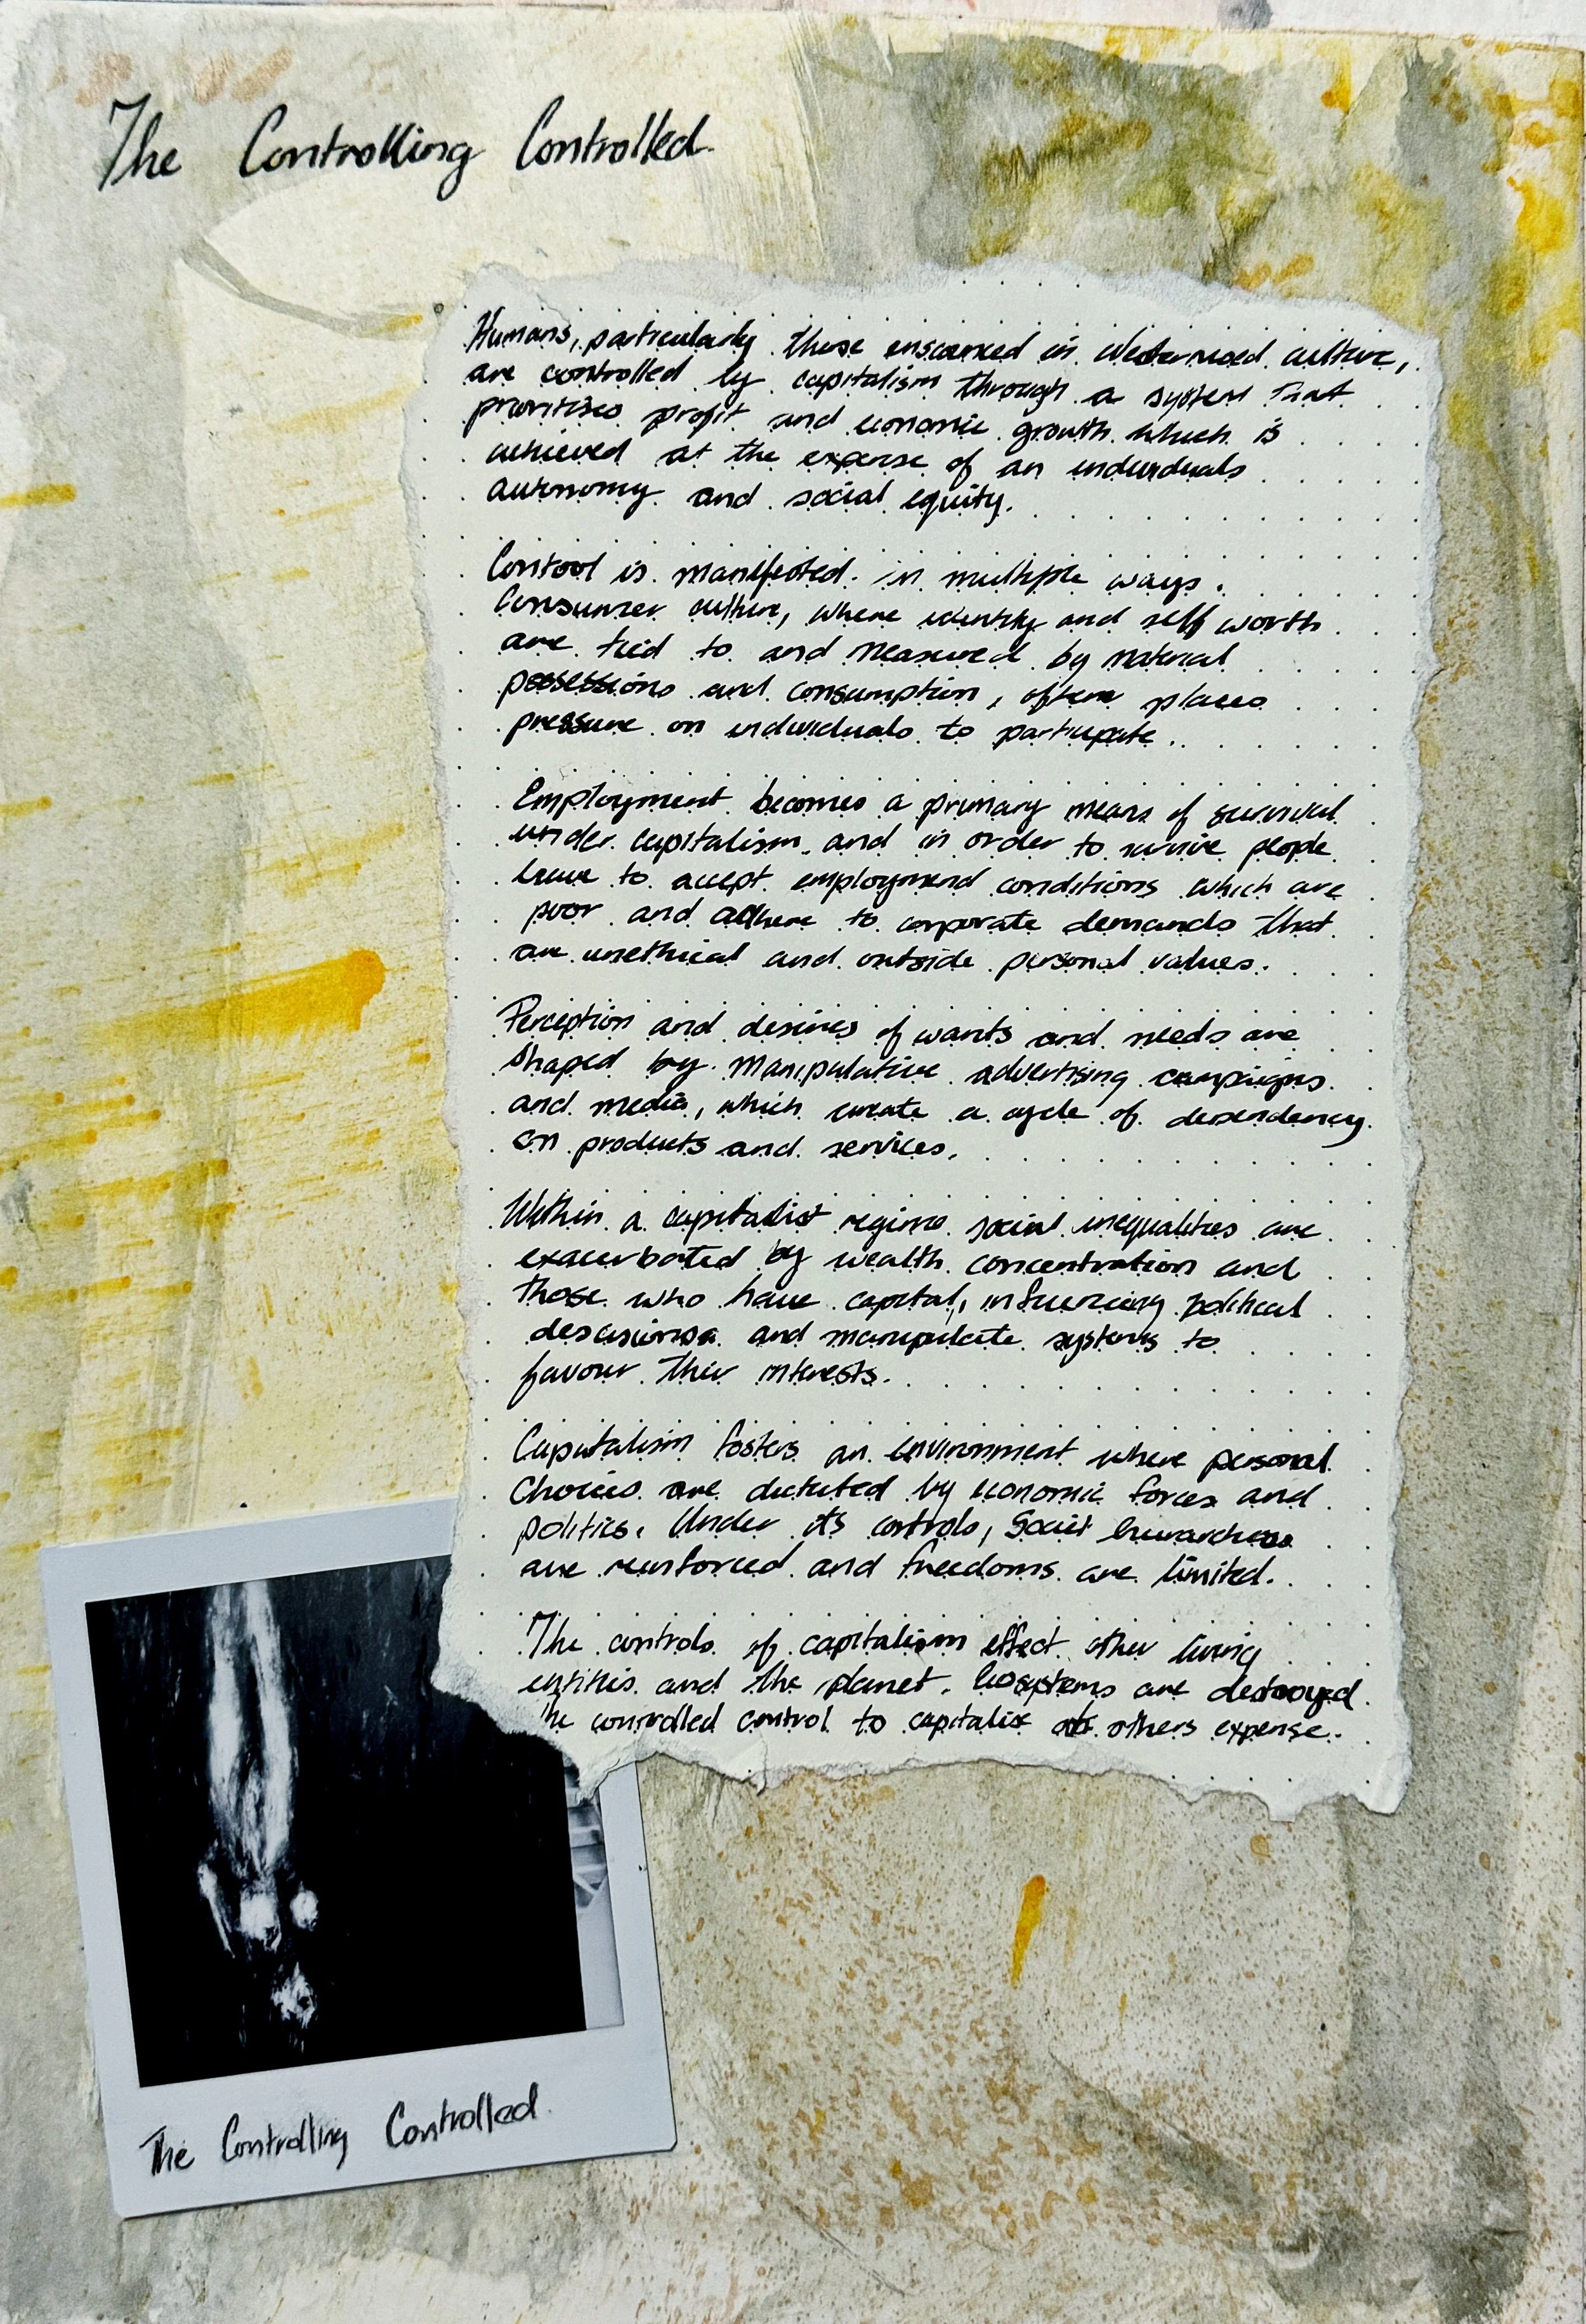 The Controlling Controlled.
Humans, particularly those ensconced in Westernised culture,
are controlled by capitalism through a system that
prioritises profit and economic growth which is
achieved at the expense of an individuals
autonomy and social equity.
Contool is manifested in multiple ways.
Consumer culture, where identity and self worth
are tied to and measured by material
possessions and consumption, often places
pressure on individuals to participate.
Employment becomes a primary means of survival
under capitalism and in order to survive people
have to accept employmend conditions which are
poor and adhere to corporate demands that
are unethical and outside personal values.
Perception and desires of wants and needs are
shaped by manipulative advertising campaigns
and media, which create a cycle of dependency
on products and services.
Within a capitalist regime social inequalities are
exacerbated by wealth concentration and
those who have capital, influencing political
descisions and manipulate systems to
favour their interests.
Capitalism fosters an environment where personal
choices are dictated by economic forces and
politics. Under its controls, Social hierarchies
are reinforced and freedoms are limited.
The controls of capitalism effect other living
entities and the planet. Ecosystems are destroyed.
The controlled control to capitalise at others expense.
The Controlling Controlled.